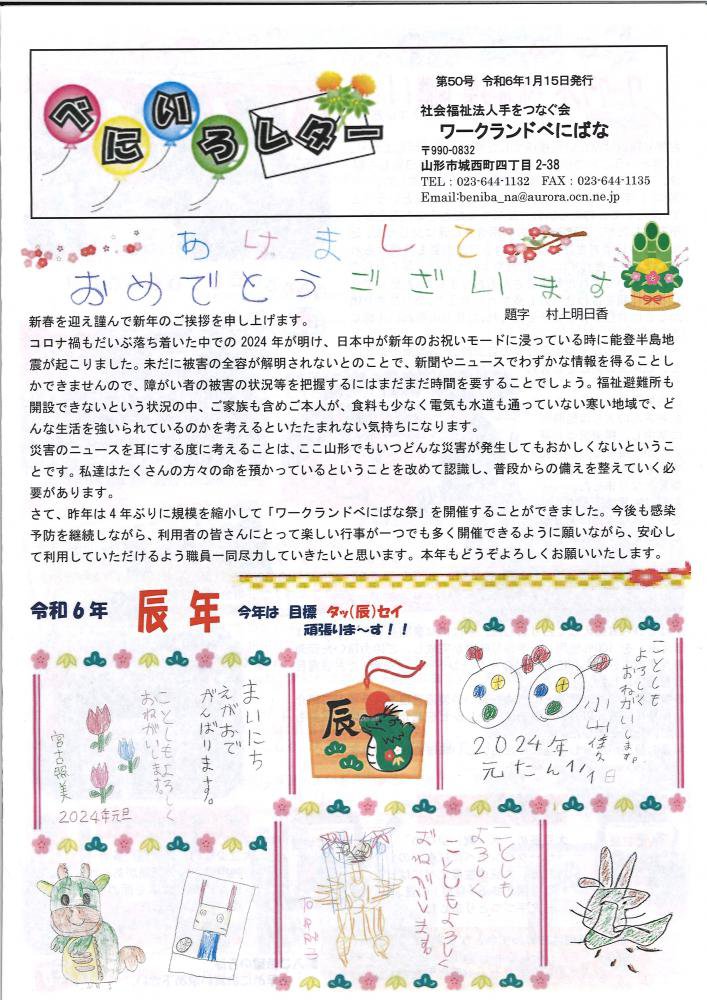 べにいろレター
第50号 令和6年1月15日発行
社会福祉法人手をつなぐ会
ワークランドべにばな
〒990-0832
山形市城西町四丁目2-38
TEL：023-644-1132 FAX：023-644-1135
Email:beniba_na@aurora.ocn.ne.jp
あけまして
おめでとうございます
題字 村上明日香
新春を迎え謹んで新年のご挨拶を申し上げます。
コロナ禍もだいぶ落ち着いた中での2024年が明け、日本中が新年のお祝いモードに浸っている時に能登半島地
震が起こりました。未だに被害の全容が解明されないとのことで、新聞やニュースでわずかな情報を得ることし
かできませんので、障がい者の被害の状況等を把握するにはまだまだ時間を要することでしょう。福祉避難所も
開設できないという状況の中、ご家族も含めご本人が、食料も少なく電気も水道も通っていない寒い地域で、ど
んな生活を強いられているのかを考えるといたたまれない気持ちになります。
災害のニュースを耳にする度に考えることは、ここ山形でもいつどんな災害が発生してもおかしくないというこ
とです。私達はたくさんの方々の命を預かっているということを改めて認識し、普段からの備えを整えていく必
要があります。
さて、昨年は4年ぶりに規模を縮小して「ワークランドべにばな祭」を開催することができました。今後も感染
予防を継続しながら、利用者の皆さんにとって楽しい行事が一つでも多く開催できるように願いながら、安心し
て利用していただけるよう職員一同尽力していきたいと思います。本年もどうぞよろしくお願いいたします。
令和6年 辰年 今年は 目標 タッ(辰)セイ
頑張りま～す！！
まいにち
えがおで
がんばります。
ことしもよろしく
おねがいします。
宮古照美
2024年元旦
辰
ことしも
よろしく
おねがいします。
小山佳久
2024年
元たん1/1日
ことしも
よろしく
ことしもよろしく
おねがいします。